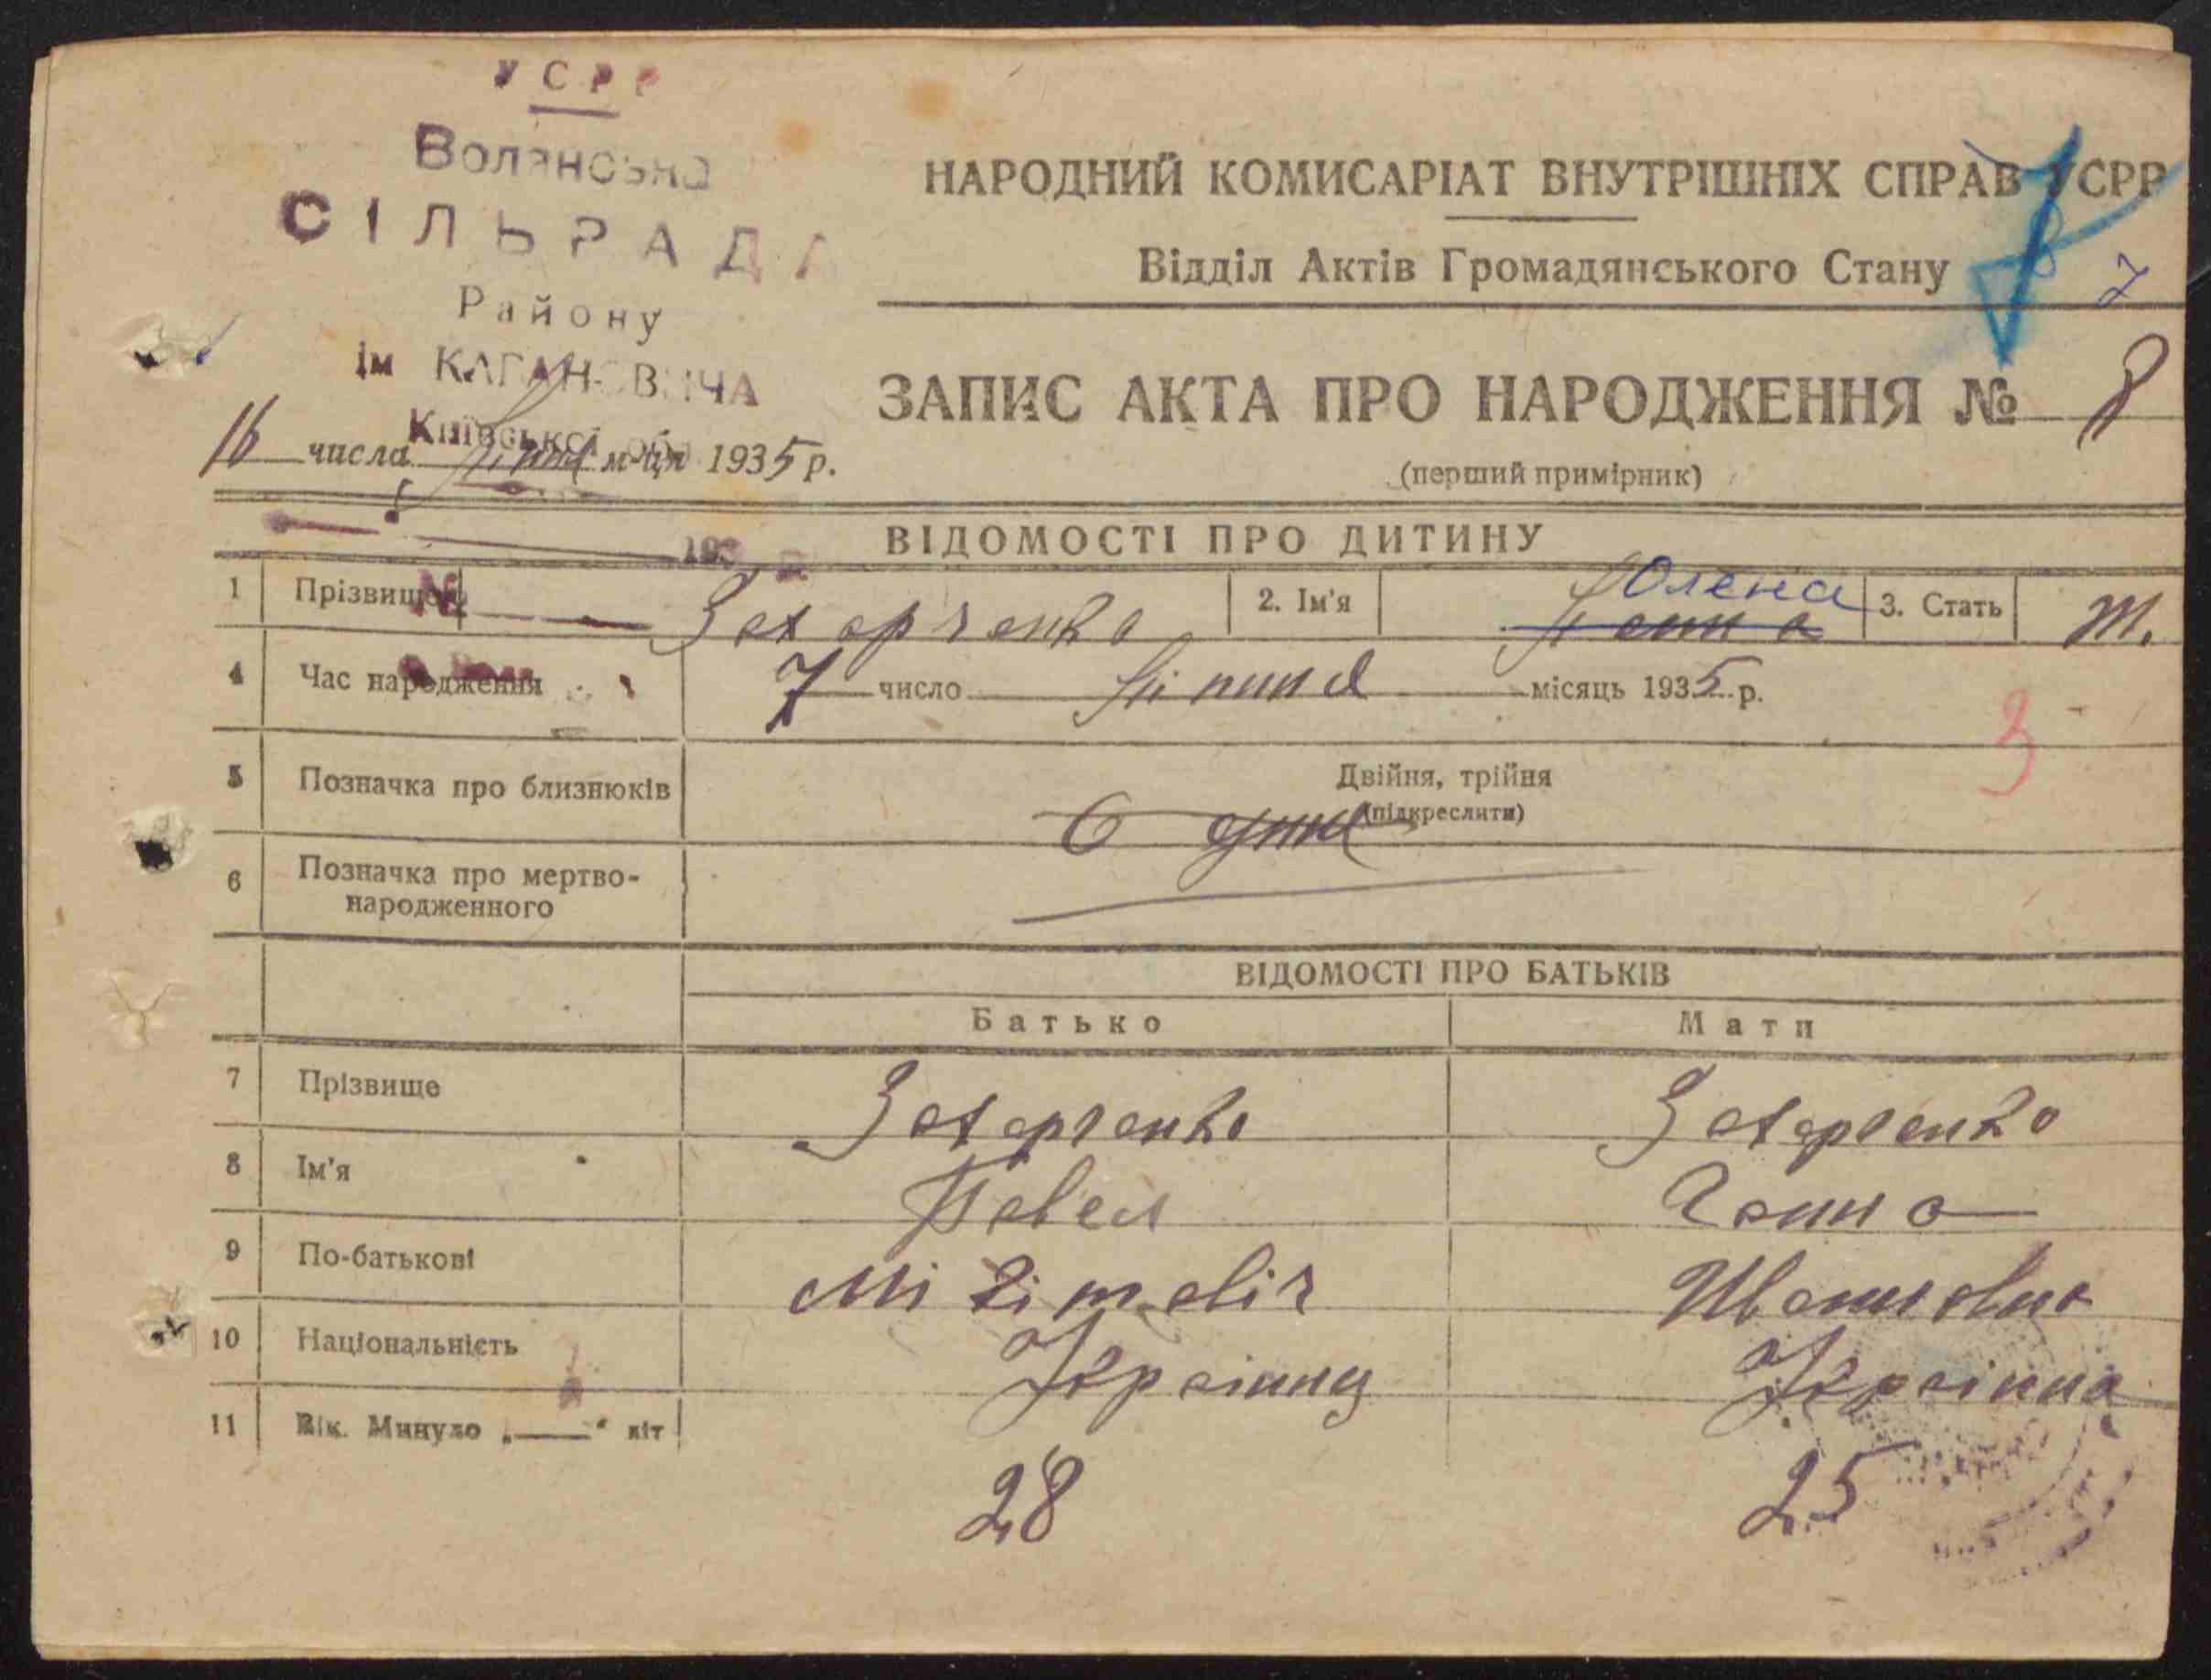 УСРР
Волянська
СІЛЬРАДА
Району
ім КАГАНОВИЧА
Київської обл
НАРОДНИЙ КОМИСАРІАТ ВНУТРІШНІХ СПРАВ УСРР
Відділ Актів Громадянського Стану
7
ЗАПИС АКТА ПРО НАРОДЖЕННЯ № 8
(перший примірник)
16 числа липня м-ця 1935 р.
193
ВІДОМОСТІ ПРО ДИТИНУ
1 Прізвище Захарченко 2. Ім'я Олена Ганна 3. Стать Ж.
4 Час народження 7 число Липня місяць 1935 р.
3
5 Позначка про близнюків Двійня, трійня
(підкреслити)
Одна
6 Позначка про мертво-
народженного
ВІДОМОСТІ ПРО БАТЬКІВ
Батько Мати
7 Прізвище Захарченко Захарченко
8 Ім'я Павел Ганна
9 По-батькові Мікітовіч Ивановна
10 Національність Українец Українка
11 Вік. Минуло „——“ літ 28 25